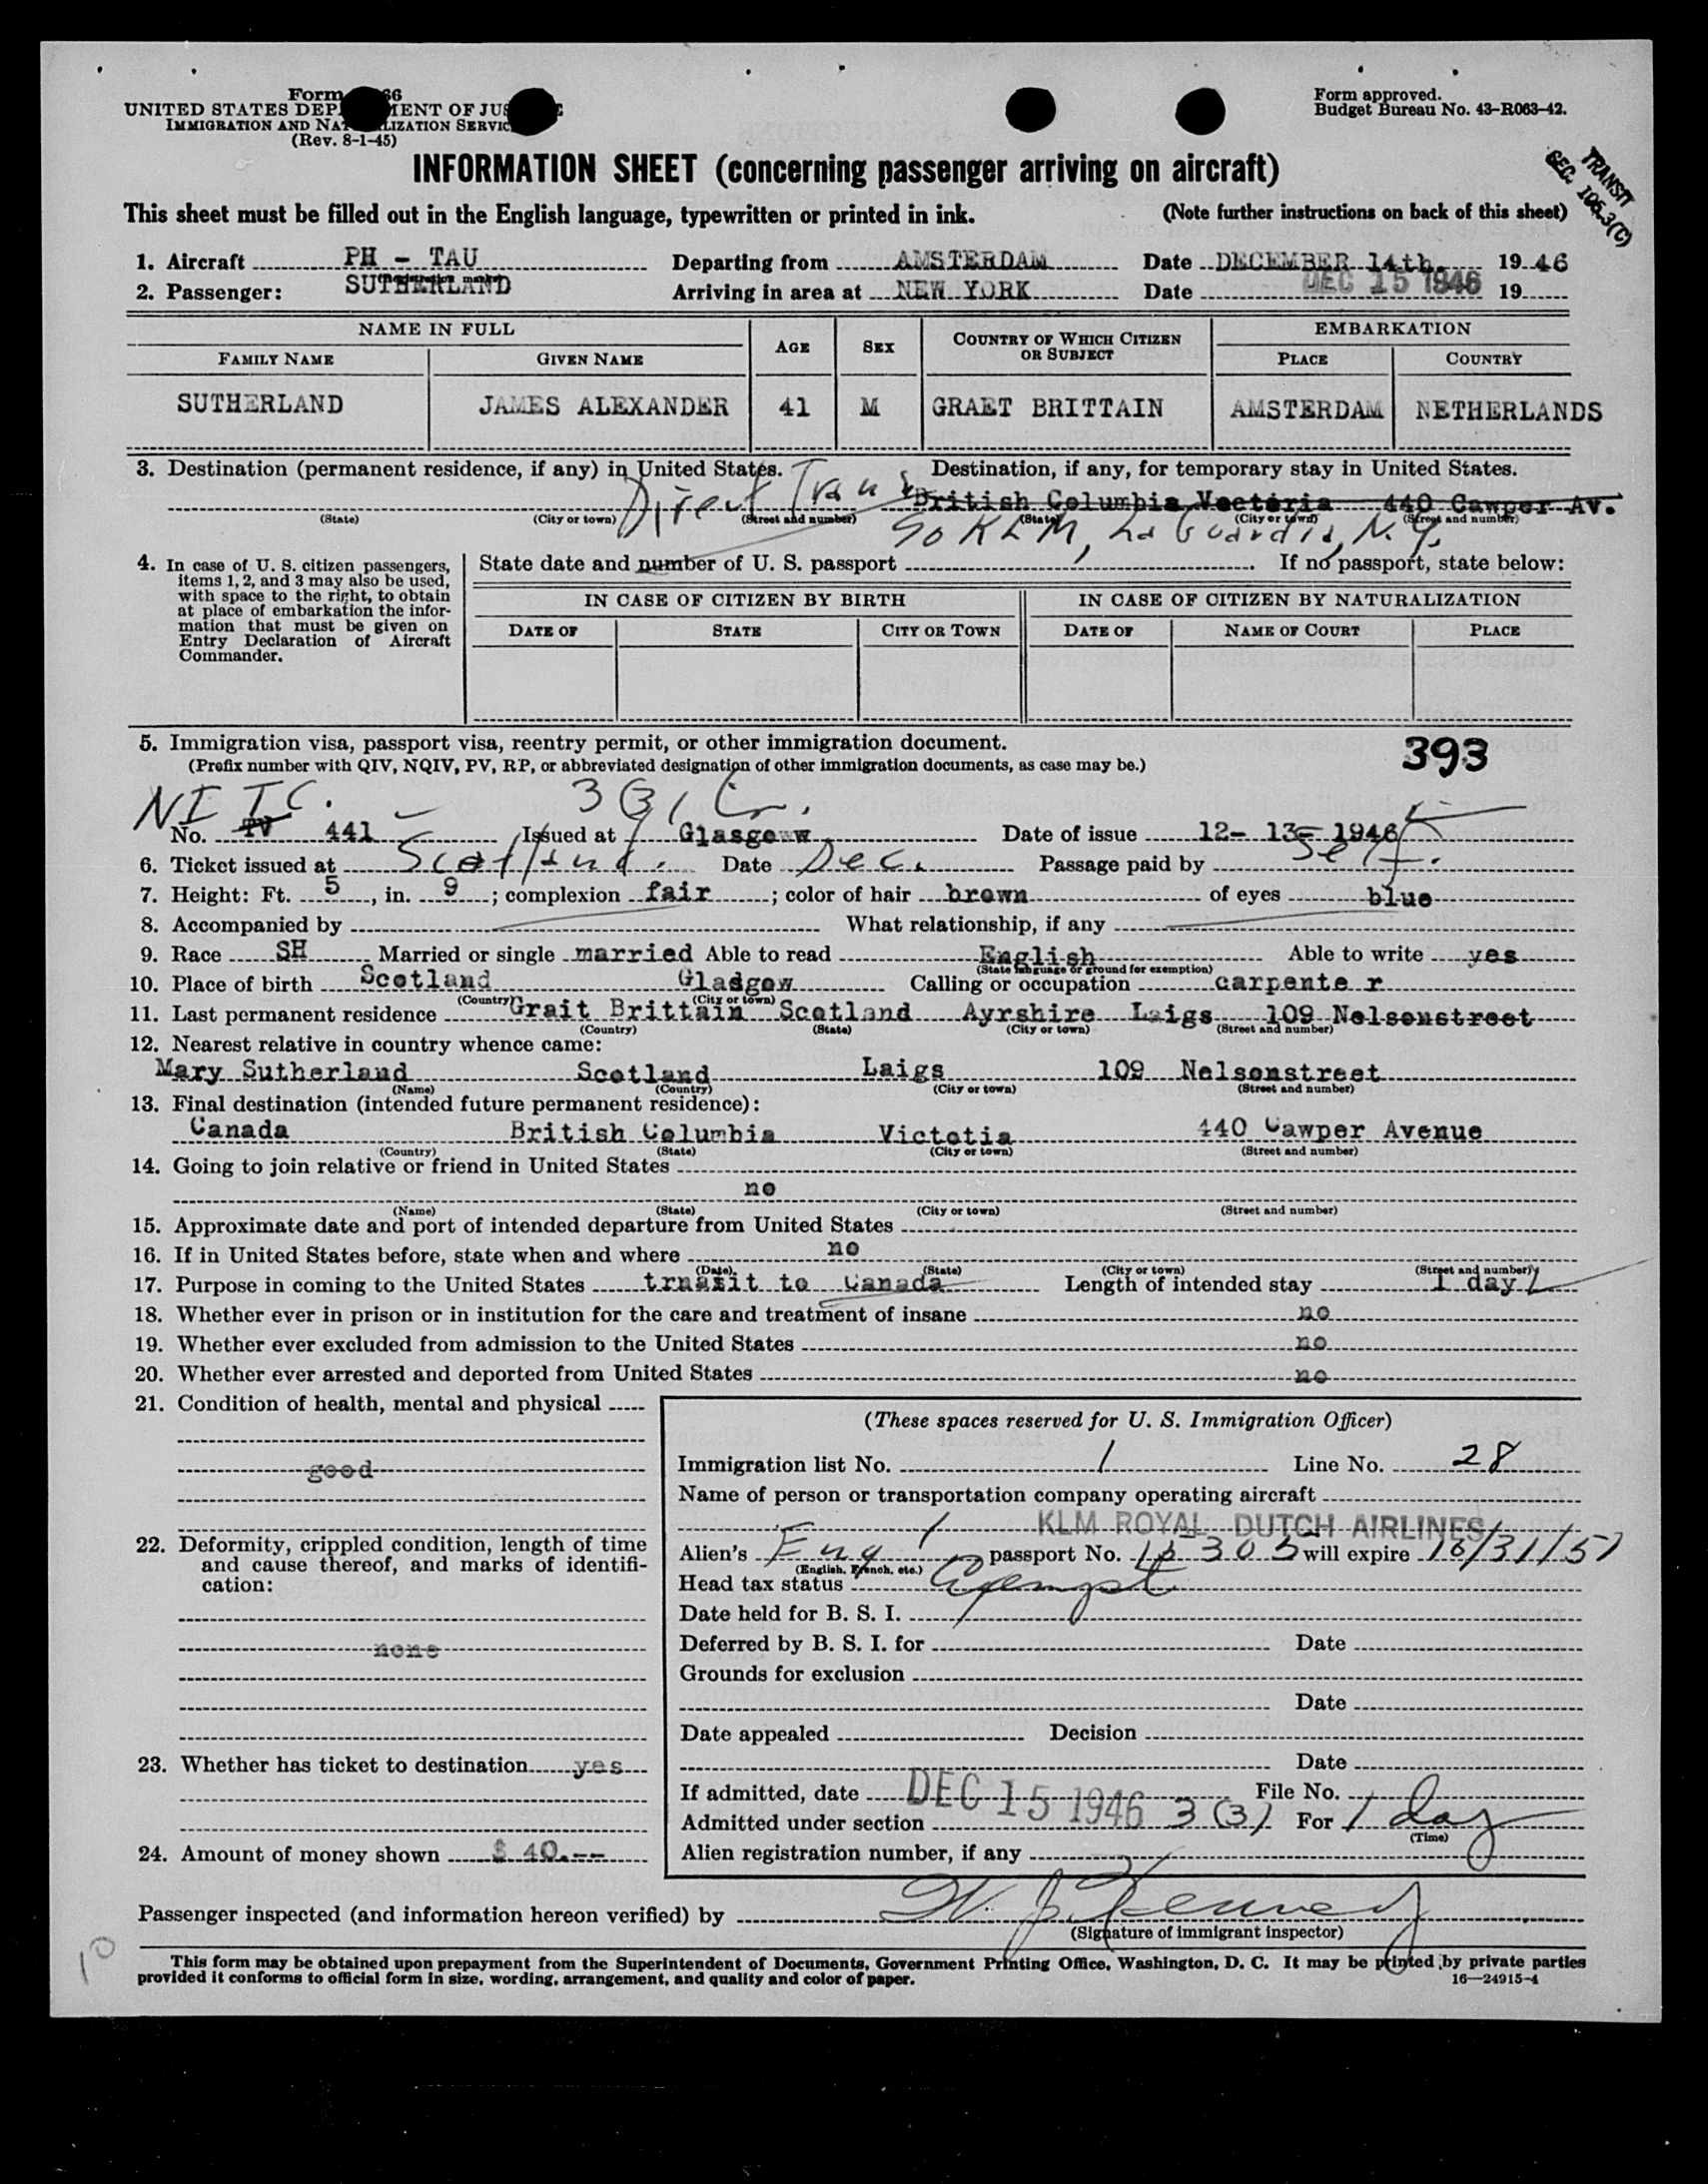 Form 66
UNITED STATES DEP MENT OF JUS E
IMMIGRATION AND NAT LIZATION SERVIC
(Rev. 8-1-45)
Form approved.
Budget Bureau No. 43-R063-42.
TRANSIT
SEC. 105.3(C)
INFORMATION SHEET (concerning passenger arriving on aircraft)
This sheet must be filled out in the English language, typewritten or printed in ink. (Note further instructions on back of this sheet)
1. Aircraft PH - TAU Departing from AMSTERDAM Date DECEMBER 14th. 19 46
2. Passenger: SUTHERLAND Arriving in area at NEW YORK Date DEC 15 1946 19
NAME IN FULL AGE SEX COUNTRY OF WHICH CITIZEN OR SUBJECT EMBARKATION
FAMILY NAME GIVEN NAME PLACE COUNTRY
SUTHERLAND JAMES ALEXANDER 41 M GRAET BRITTAIN AMSTERDAM NETHERLANDS
3. Destination (permanent residence, if any) in United States. Destination, if any, for temporary stay in United States.
Direct Trans British Columbia Vectoria 440 Cawper Av.
(State) (City or town) (Street and number) (State) (City or town) (Street and number)
KLM, La Guardia, N.Y.
4. In case of U. S. citizen passengers, items 1, 2, and 3 may also be used, with space to the right, to obtain at place of embarkation the information that must be given on Entry Declaration of Aircraft Commander.
State date and number of U. S. passport If no passport, state below:
IN CASE OF CITIZEN BY BIRTH IN CASE OF CITIZEN BY NATURALIZATION
DATE OF STATE CITY OR TOWN DATE OF NAME OF COURT PLACE
5. Immigration visa, passport visa, reentry permit, or other immigration document. 393
(Prefix number with QIV, NQIV, PV, RP, or abbreviated designation of other immigration documents, as case may be.)
NI TC.
No. TV 441 Issued at Glasgoww Date of issue 12- 13- 1946
6. Ticket issued at Scotland. Date Dec. Passage paid by Self.
7. Height: Ft. 5, in. 9; complexion fair; color of hair brown of eyes blue
8. Accompanied by What relationship, if any
9. Race SH Married or single married Able to read English Able to write yes
(State language or ground for exemption)
10. Place of birth Scotland Gladgow Calling or occupation carpente r
(Country) (City or town)
11. Last permanent residence Grait Brittain Scotland Ayrshire Laigs 109 Nelsonstreet
(Country) (State) (City or town) (Street and number)
12. Nearest relative in country whence came:
Mary Sutherland Scotland Laigs 109 Nelsonstreet
(Name) (Country) (City or town) (Street and number)
13. Final destination (intended future permanent residence):
Canada British Columbia Victotia 440 Cawper Avenue
(Country) (State) (City or town) (Street and number)
14. Going to join relative or friend in United States
no
(Name) (State) (City or town) (Street and number)
15. Approximate date and port of intended departure from United States
16. If in United States before, state when and where no
(Date) (State) (City or town) (Street and number)
17. Purpose in coming to the United States trnasit to Canada Length of intended stay 1 day
18. Whether ever in prison or in institution for the care and treatment of insane no
19. Whether ever excluded from admission to the United States no
20. Whether ever arrested and deported from United States no
21. Condition of health, mental and physical
good
22. Deformity, crippled condition, length of time and cause thereof, and marks of identification:
none
23. Whether has ticket to destination yes
24. Amount of money shown $ 40.--
(These spaces reserved for U. S. Immigration Officer)
Immigration list No. 1 Line No. 28
Name of person or transportation company operating aircraft
KLM ROYAL DUTCH AIRLINES
Alien's Eng passport No. will expire
(English, French, etc.)
Head tax status Exempt
Date held for B. S. I.
Deferred by B. S. I. for Date
Grounds for exclusion
Date
Date appealed Decision
Date
If admitted, date DEC 15 1946 File No.
Admitted under section 3 (3) For 1 day
(Time)
Alien registration number, if any
Passenger inspected (and information hereon verified) by W. J. Kennedy
(Signature of immigrant inspector)
10
This form may be obtained upon prepayment from the Superintendent of Documents, Government Printing Office, Washington, D. C. It may be printed by private parties
provided it conforms to official form in size, wording, arrangement, and quality and color of paper. 16—24915-4